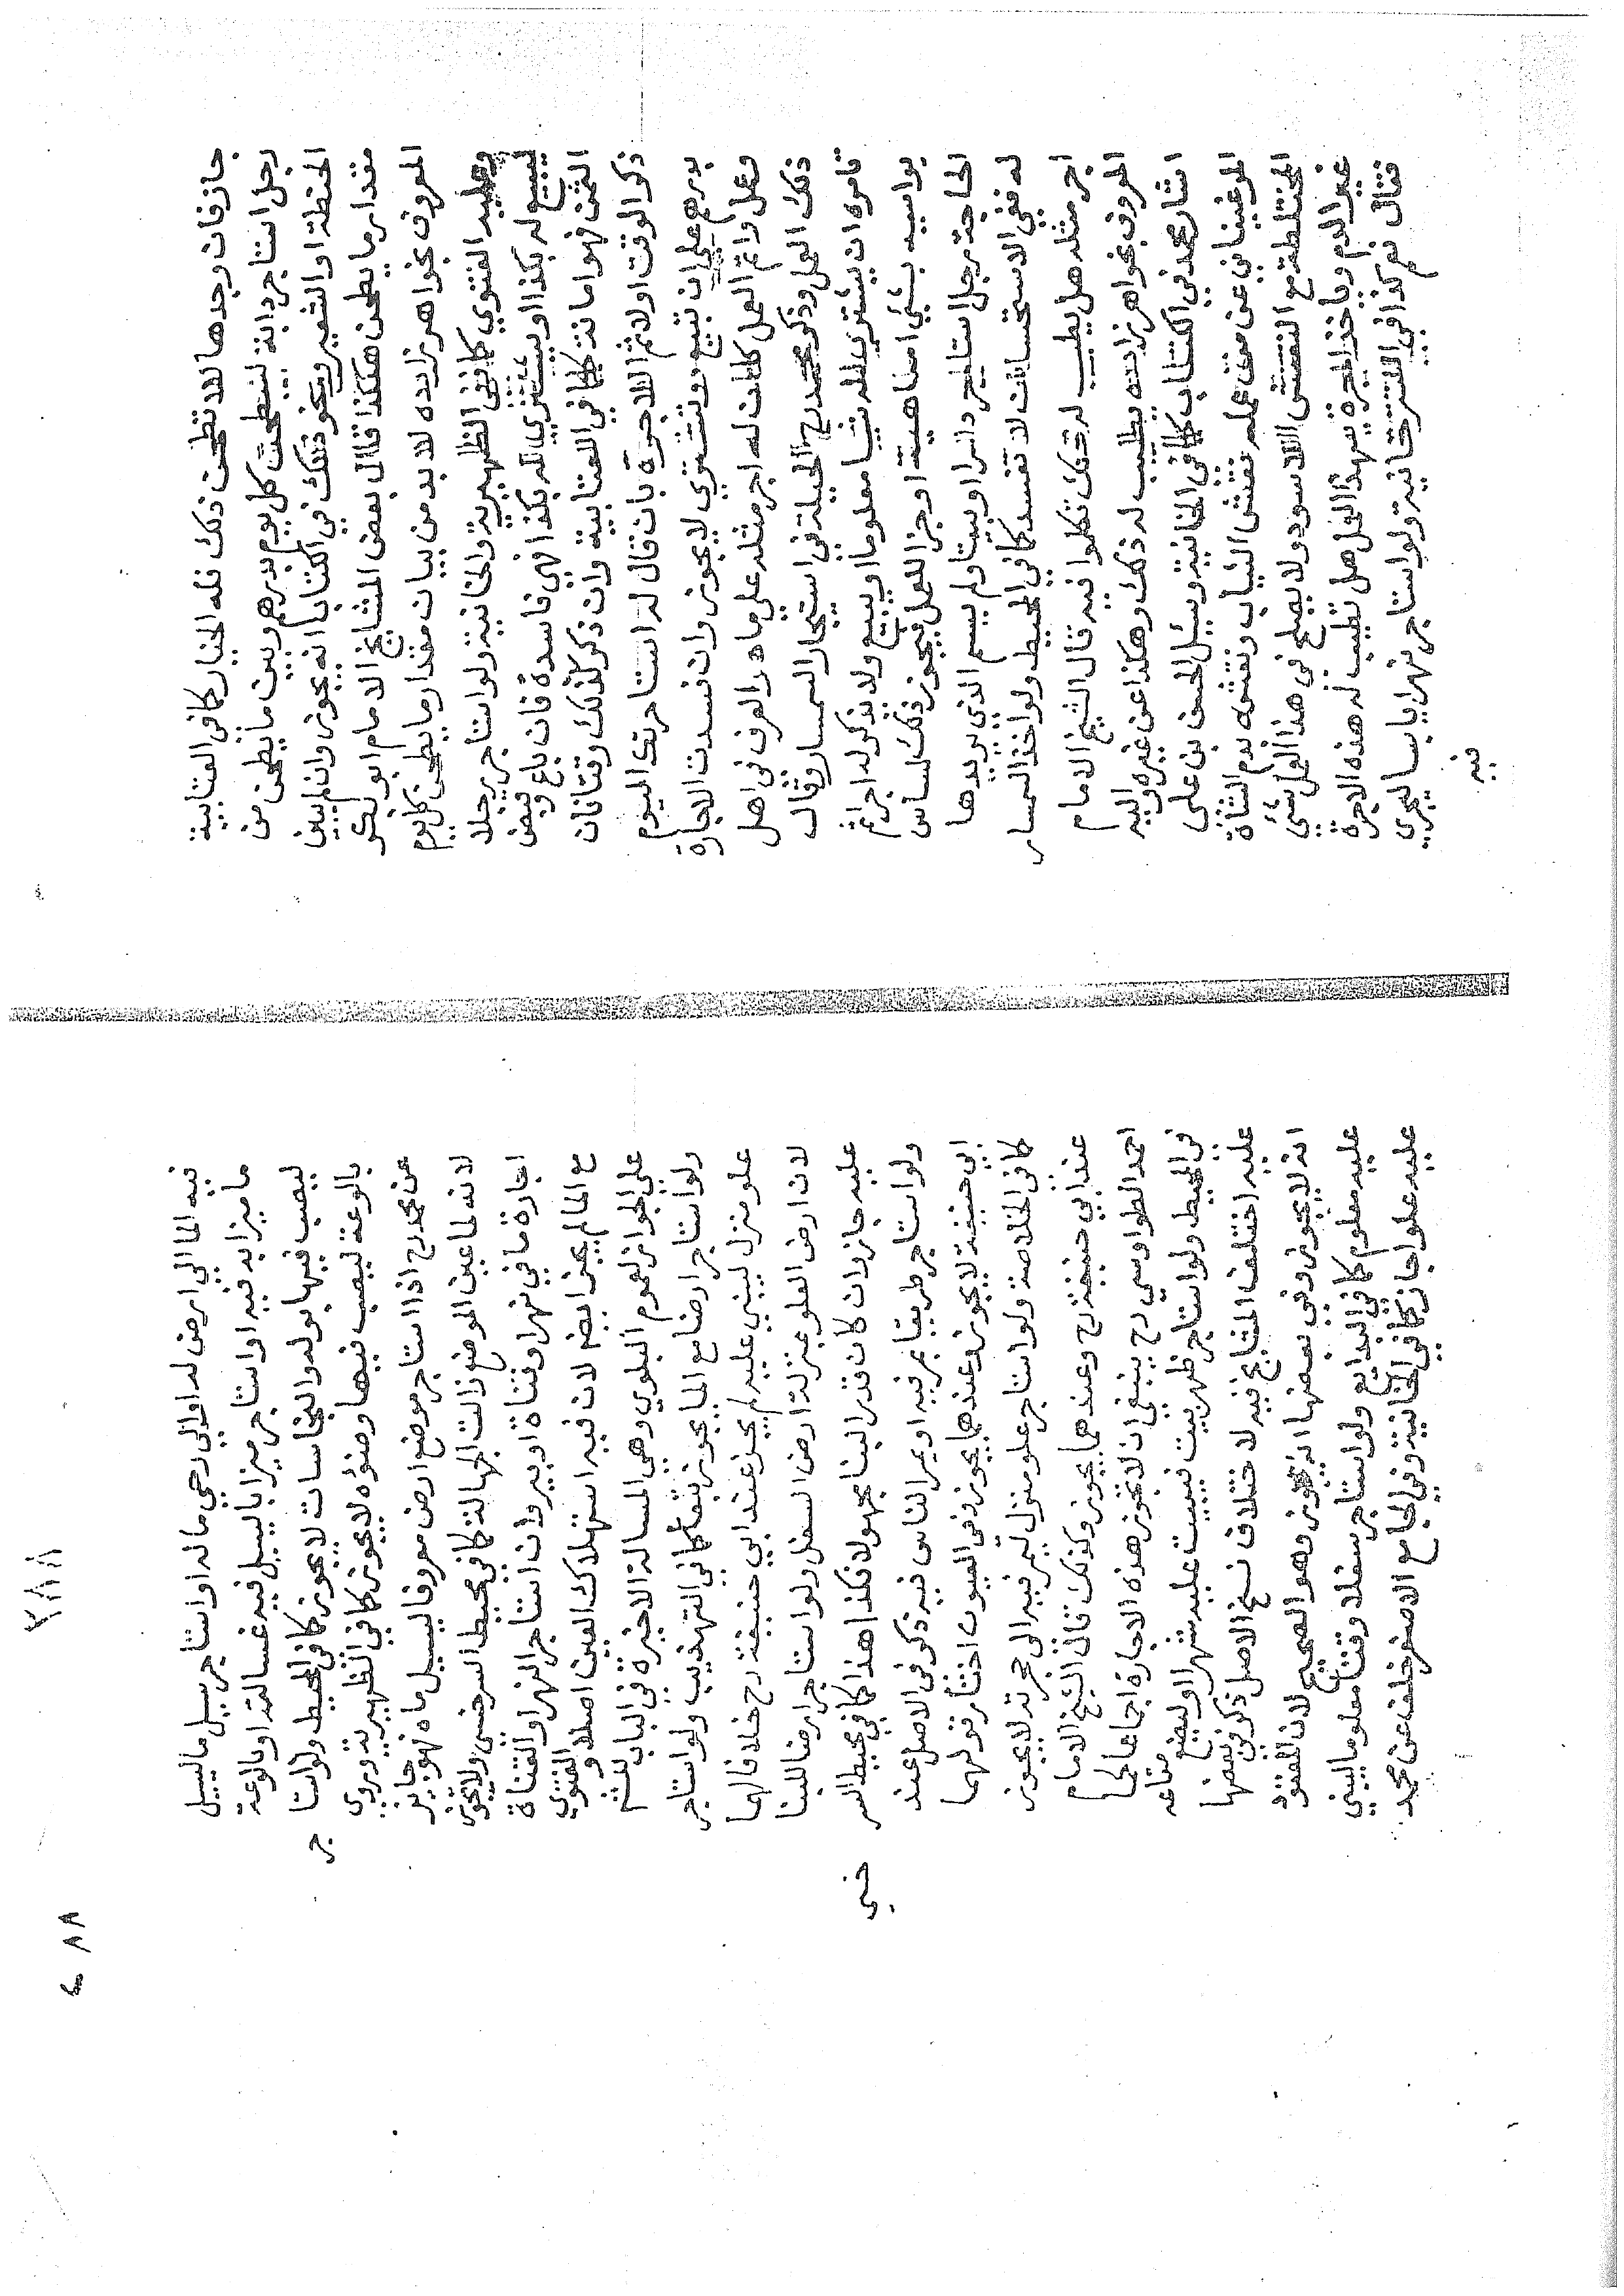 جاز فان وجدها لا تطحن ذلك فله الخيار كما في العتابية
رجل استاجر دابة ليطحن كل يوم بدرهم وبين ما يطحن من
الحنطة او الشعير ونحو ذلك في الكتاب انه يجوز وان لم يبين
مقدار ما يطحن هكذا قال بعض المشايخ الامام ابو بكر
المعروف بخواهر زاده لا بد من بيان مقدار ما يطحن كل يوم
وعليه الفتوي كما في الظهيرية والخانية ولو استاجر رجلا
ليبيع له بكذا او يشتري له بكذا فهي فاسدة فان باع وقبض
الثمن فهو امانة كما في العتابية وان ذكر لذلك وقتا فان
ذكر الوقت اولا ثم الاجرة بان قال له استاجرتك اليوم
بدرهم علي ان تبيع وتشتري لا يجوز وان فسدت الاجارة
وعمل واتم العمل كان له اجر مثله علي ما هو العرف في اهل
ذلك العمل وذكر محمد رح الحيلة في استيجار السمسار وقال
تامره ان يشتري له شيا معلوما او يبيع ولا يذكر له اجرا ثم
يواسيه بشي اما هبة او جزا لعمله فيجوز ذلك لمساس
الحاجة رجل استاجر دارا او بيتا ولم يسم الذي يريدها
له ففي الاستحسان لا تفسد كما في المحيط ولو اخذ السمسار
اجر مثله هل يطيب له ذلك تكلموا فيه قال الشيخ الامام
المعروف بخواهر زاده يطيب له ذلك وهكذا عن غيره واليه
اشار محمد في الكتاب كما في الخانية وسئل الحسن بن علي
المرغيناني عن من عمله نقش الثياب ونقشه بدم الشاة
المختلطة مع النقش الاسود ولا يصلح في هذا العمل شي
غير الدم وياخذ اجرة بهذا العمل هل تطيب له هذه الاجرة
فقال نعم كذا في التترخانية ولو استاجر نهرا يابسا ليجري
فيه
٢١١١
٨٨
فيه الما الي ارض له او الي رحي ما له او استاجر مسيل ما ليسيل
ما ميزابه فيه او استاجر ميزابا ليسيل فيه غسالته او بالوعة
ليصب فيها بوله والنجاسات لا يجوز كما في المحيط ولو استا
جر
بالوعة ليصب فيها وضوءه لا يجوز كما في الظهيرية ويروي
عن محمد رح اذا استاجر موضع ارض معروفا ليسيل ماه فهو جايز
لانه لما عين الموضع زالت الجهالة كما في محيط السرخسي ولا تجوز
اجارة ما في نهر او قناة او بير وان استاجر النهر او القناة
مع الما لم يجز ايضا لان فيه استهلاك العين اصلا والفتوي
علي الجواز لعموم البلوي وهي المسالة الاخيرة في الباب ثم
ولو استاجر ارضا مع الما يجوز تبعا كما في التهذيب ولو استاجر
علو منزل ليبني عليه لم يجز عند ابي حنيفة رح خلافا لهما
لان ارض العلو بمنزلة ارض السفل ولو استاجر ارضا للبنا
عليه جاز وان كان قدر البنا مجهولا فكذا هذا كما في محيط السر
خسي
ولو استاجر طريقا يمر فيه او يمر الناس فيه ذكر في الاصل عند
ابي حنيفة لا يجوز وعندهما يجوز وفي العيون اختار قولهما
كما في الخلاصة ولو استاجر علو منزل ليمر فيه الي حجرته لا يجوز
عند ابي حنيفة رح وعندهما يجوز وكذلك قال الشيخ الامام
احمد الطواويسي رح ينبغي ان لا تجوز هذه الاجارة اجماعا كما
في المحيط ولو استاجر ظهر بيت ليبيت عليه شهرا او ليضع متاعه
عليه اختلف المشايخ فيه لاختلاف نسخ الاصل ذكر في بعضها
انه لا يجوز وفي بعضها انه يجوز وهو الصحيح لان المعقود
عليه معلوم كما في البدايع ولو استاجر سفلا وقتا معلوما ليبني
عليه علوا جاز كما في الخانية وفي الجامع الاصغر خلف عن محمد